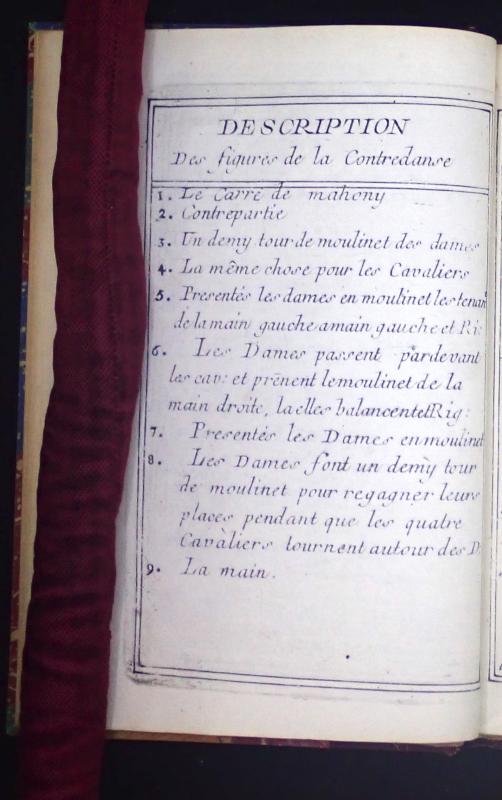 DESCRIPTION
Des figures de la Contredanse
1. Le Carré de mahony
2. Contrepartie
3. Un demy tour de moulinet des dames
4. La même chose pour les Cavaliers
5. Presentés les dames en moulinet les tenan
de la main gauche a main gauche et Ri
6. Les Dames passent pardevant
les cav: et prênent le moulinet de la
main droite, la elles balancent et Rig:
7. Presentés les Dames en moulinet
8. Les Dames font un demy tour
de moulinet pour regagner leurs
places pendant que les quatre
Cavaliers tournent autour des D
9. La main.